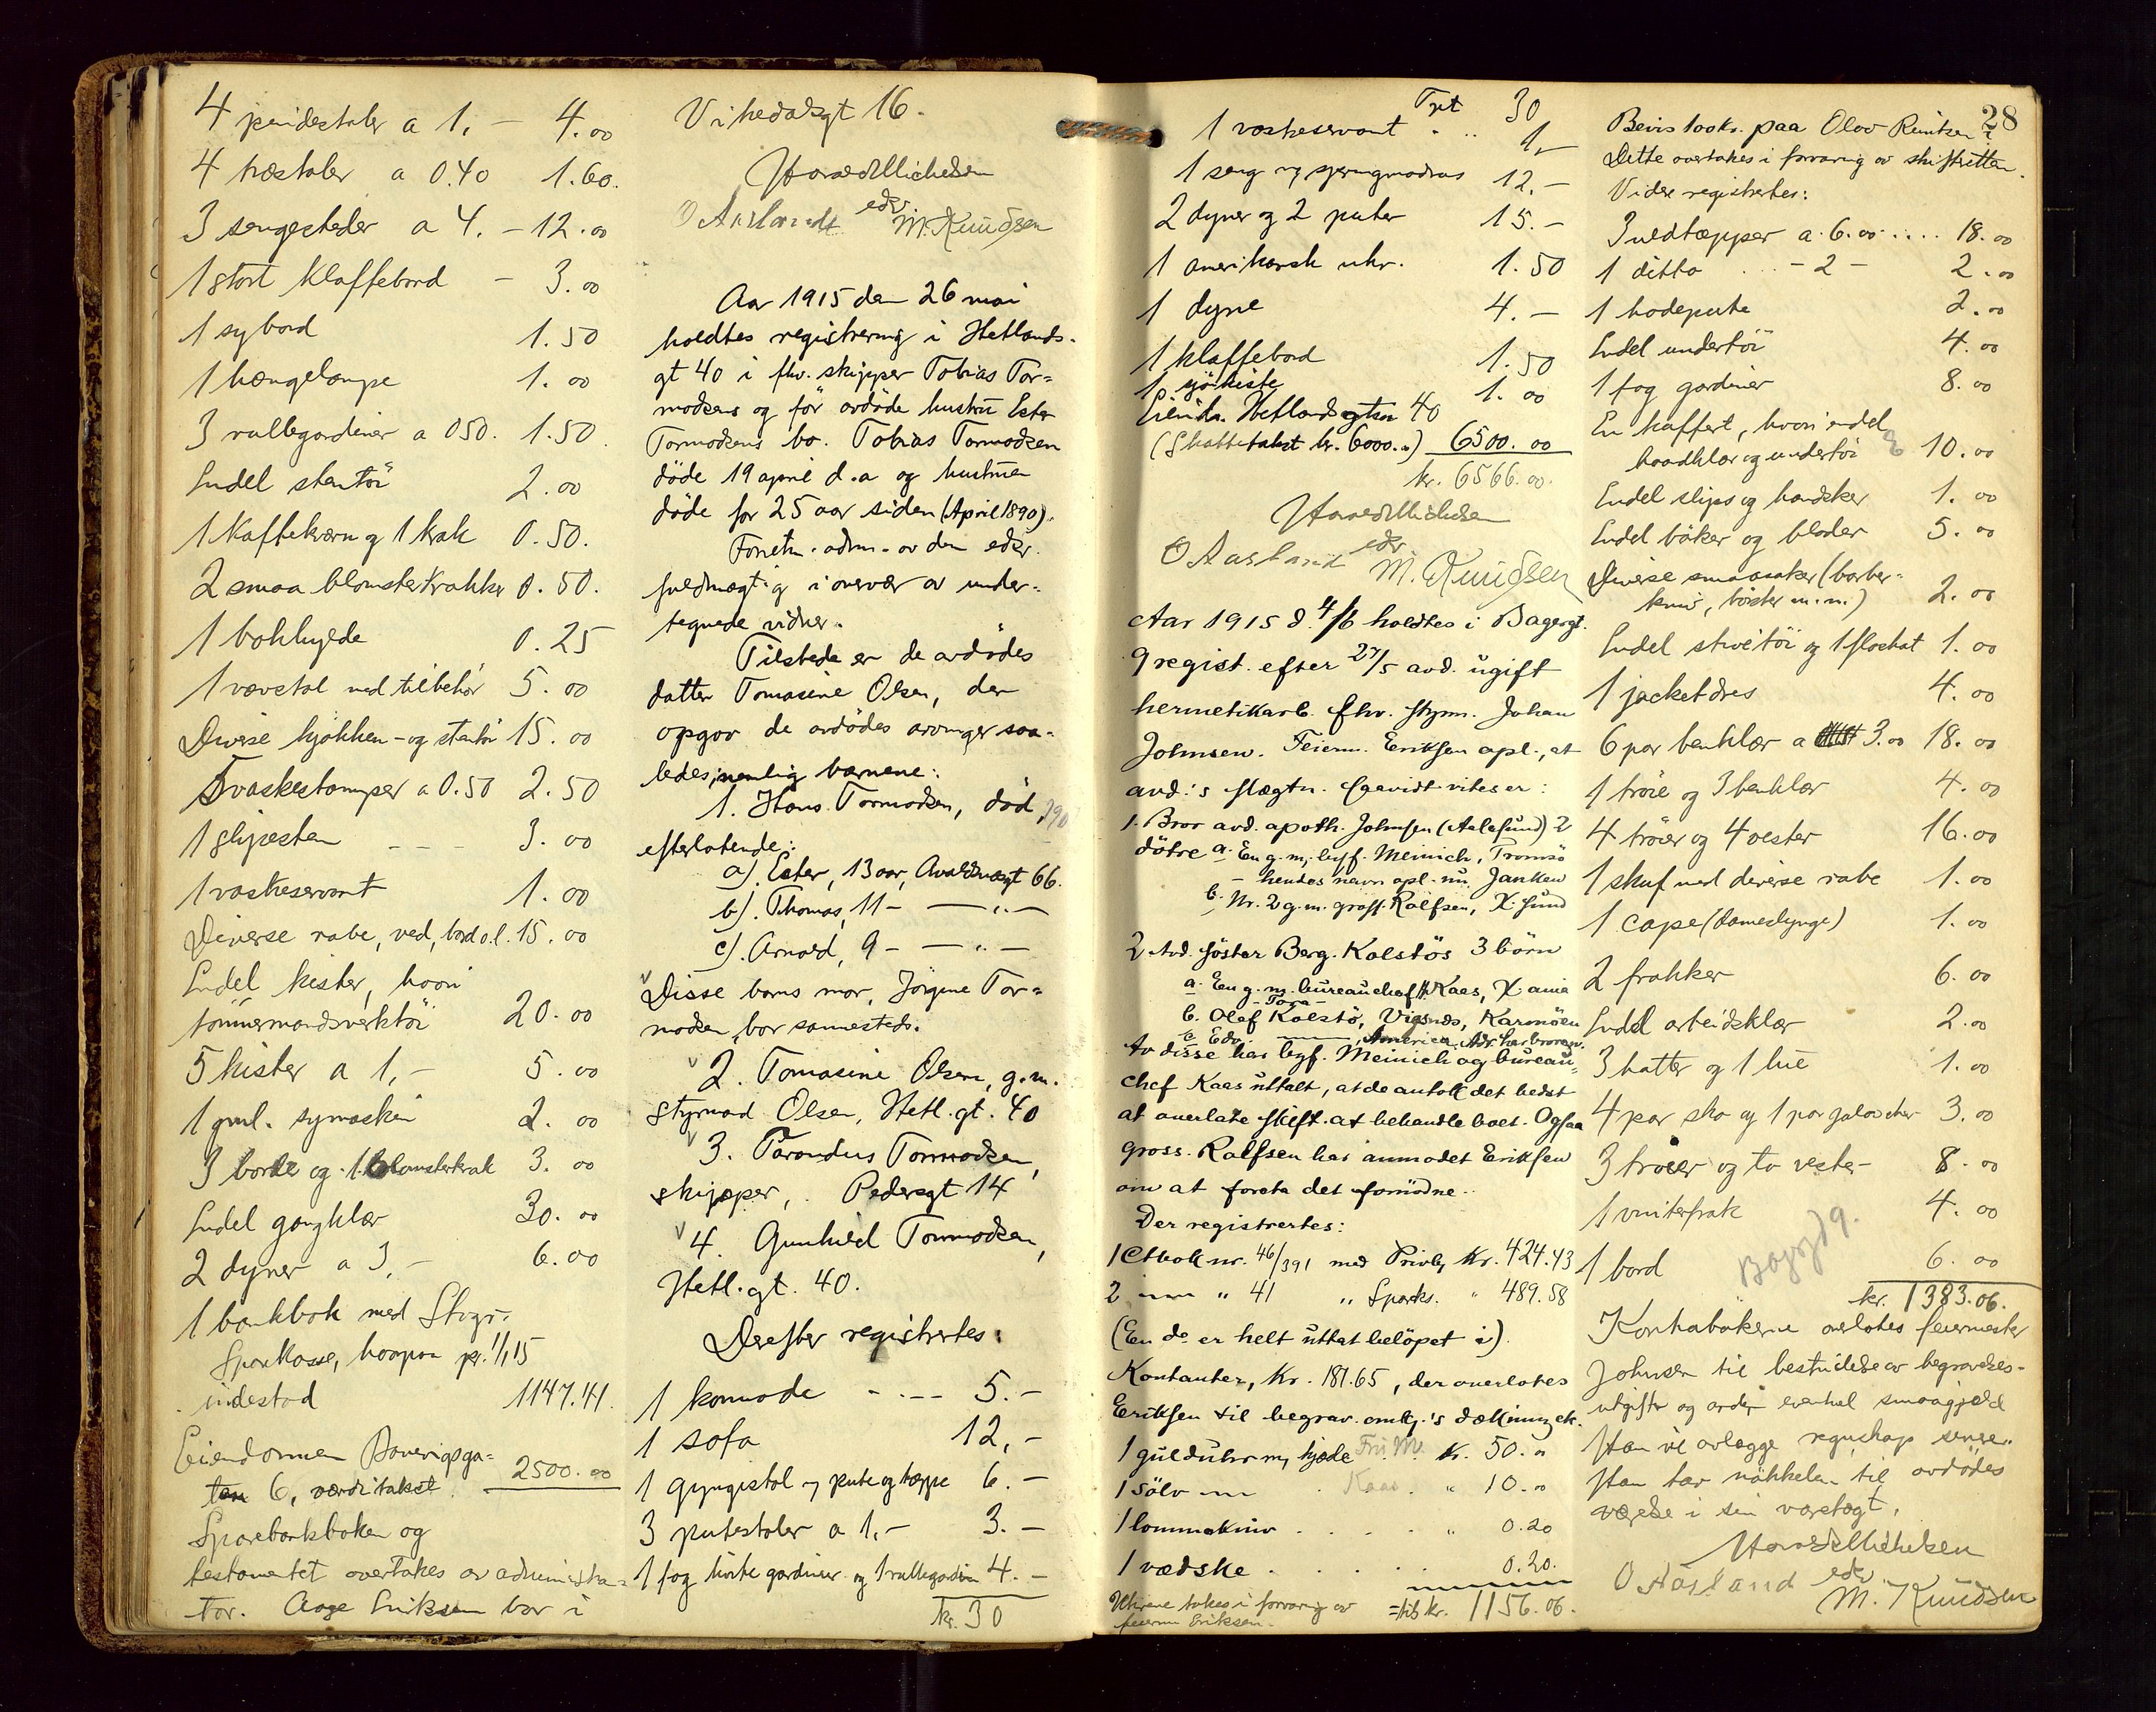 4 pindestoler a 1,- 4.00
4 træstoler a 0.40 1.60.
3 sengesteder a 4.- 12.00
1 stort klaffebord - 3.00
1 sybord 1.50
1 hængelampe 1.00
3 rullegardiner a 050. 1.50.
Endel stentöi 2.00
1 Kaffekværn og 1 krak 0.50.
2 smaa blomsterkrakker 0.50.
1 bokhylde 0.25
1 vævstol med tilbehör 5.00
Diverse kjökken- og stentöi 15.00
5 vaskestamper a 0.50 2.50
1 slipesten - - - 3.00
1 vaskeservant 1.00
Diverse rabe, ved, bord o.l. 15.00
Endel kister, hvori
tömmermandsverktöi 20.00
5 kister a 1,- 5.00
1 gml. symaskin 2.00
3 borde og 1 blomsterkrak 3.00
Endel gangklær 30.00
2 dyner a 3,- 6.00
1 bankbok med Stvgr.
Sparkasse, hvorpaa pr. 1/1 15
indestod 1147.41.
Eiendommen Banevigsga-
ten 6, værditakst. 2500.00
Sparebankboken og
testamentet overtakes av administra-
tor. Aage Eriksen bor i
Vihedalsgt 16.
Harald Michelsen
edsv.
O Aasland M. Knudsen
Aar 1915 den 26 mai
holdtes registrering i Hetlands-
gt 40 i fhv. skipper Tobias Tor-
modsens og för avdöde hustru Ester
Tormodsens bo. Tobias Tormodsen
döde 19 april d.a og hustruen
döde for 25 aar siden (April 1890).
Forretn. adm. av den edsv.
fuldmægtig i overvær av under-
tegnede vidner.
Tilstede er de avdödes
datter Tomasine Olsen, der
opgav de avdödes arvinger saa-
ledes, nemlig barnene:
1. Hans Tormodsen, död,
efterlatende:
a). Ester, 13 aar, Avaldsnesgt 66.
b). Thomas, 11 - —"—
c). Arnold, 9 - —"—
Disse barns mor, Jörgine Tor-
modsen, bor sammesteds.
2. Tomasine Olsen, g.m.
styrmand Olsen, Hetl.gt. 40
3. Tarandus Tormodsen,
skipper, Pedersgt 14
4. Gunhild Tormodsen,
Hetl.gt. 40.
Derefter registrertes:
1 komode - - - - 5.-
1 sofa 12,-
1 gyngestol og pute og tæppe 6.-
3 putestoler a 1,- 3.-
1 fag hvite gardiner og 1 rullegardin 4.-
kr. 30
Trpt 30
1 vaskeservant . .. 1,-
1 seng og sprengmadras 12.-
2 dyner og 2 puter 15.-
1 amerikansk uhr. 1.50
1 dyne 4.-
1 klaffebord 1.50
1 sjökiste 1.00
Eiend. Hetlandsgten 40
(Skattetakst kr. 6000.00) 6500.00
kr. 6566.00.
Harald Michelsen
edsv
O Aasland M. Knudsen
Aar 1915 d. 4/6 holdtes i Bagergt.
9 regist. efter 27/5 avd. ugift
hermetikarb. fhv. styrm. Johan
Johnsen. Feierm. Eriksen opl., at
avd.'s slægtn. saavidt vites er:
1. Bror avd. apoth. Johnsen (Aalesund) 2
dötre a. En g. m. lngf. Meinich, Tromsö
- hendes navn opl. nu. Janken
b. Nr. 2 g.m. gross. Rolfsen, K.sund
2 Avd. söster Berg. Kolstös 3 börn
a. En g. m. bureauchef H. Kaas, X.ania
- Tora -
b. Olaf Kolstö, Vigsnæs, Karmöen
c. Edv. —"—, America. Adr. har broren.
Av disse har lngf. Meinich og bureau-
chef Kaas uttalt, at de antok det bedst
at overlate skift. at behandle boet. Ogsaa
gross. Rolfsen har anmodet Eriksen
om at foreta det fornödne.
Der registrertes:
1 Ctbok nr. 46/391 med Privb, Kr. 424.43
2 —"— " 41 " Sparks. " 489.58
(En do er helt uttat belöpet i).
Kontanter, Kr. 181.65, der overlates
Eriksen til begrav. omk.'s dækning ek.
1 guldur m, kjede Fru M. Kr. 50.00
1 sölv —"— Kaas. " 10.00
1 lommekniv . . . " 0.20
1 vædske . . . . 0.20.
Uhrene takes i forvaring av =tils kr. 1156.06.
feierm Eriksen.
28
Bevis 100 kr. paa Olav Reintsen i
Dette overtakes i forvaring av skifteretten.
Videre registrertes:
3 uldtæpper a 6.00 .... 18.00
1 ditto ... - 2 - 2.00
1 hodepute 2.00
Endel undertöi 4.00
1 fag gardiner 8.00
En koffert, hvori endel
haandklær og undertöi 10.00
Endel slips og handsker 1.00
Endel böker og blader 5.00
Diverse smaasaker (barber-
kniv, börster m.m.) 2.00
Endel stivetöi og 1 floshat 1.00
1 jacketdres 4.00
6 par benklær a 3.00 18.00
1 tröie og 3 benklær 4.00
4 tröier og 4 vester 16.00
1 skuf med diverse rabe 1.00
1 cape (dameslynge) 1.00
2 frakker 6.00
Endel arbeidsklær 2.00
3 hatter og 1 lue 1.00
4 par sko og 1 par galoscher 3.00
3 tröier og to vester 8.00
1 vinterfrak 4.00
1 bord 6.00
Bagergt 9.
kr. 1383.06.
Kontrabökerne overlates feiermester
Johnsen til bestridelse av begravelses-
utgifter og andre eventuel smaagjæld
Han vil avlægge regnskap senere.
Han tar nökkelen til avdödes
værelse i sin varetægt.
Harald Michelsen
edsv
O Aasland
M. Knudsen